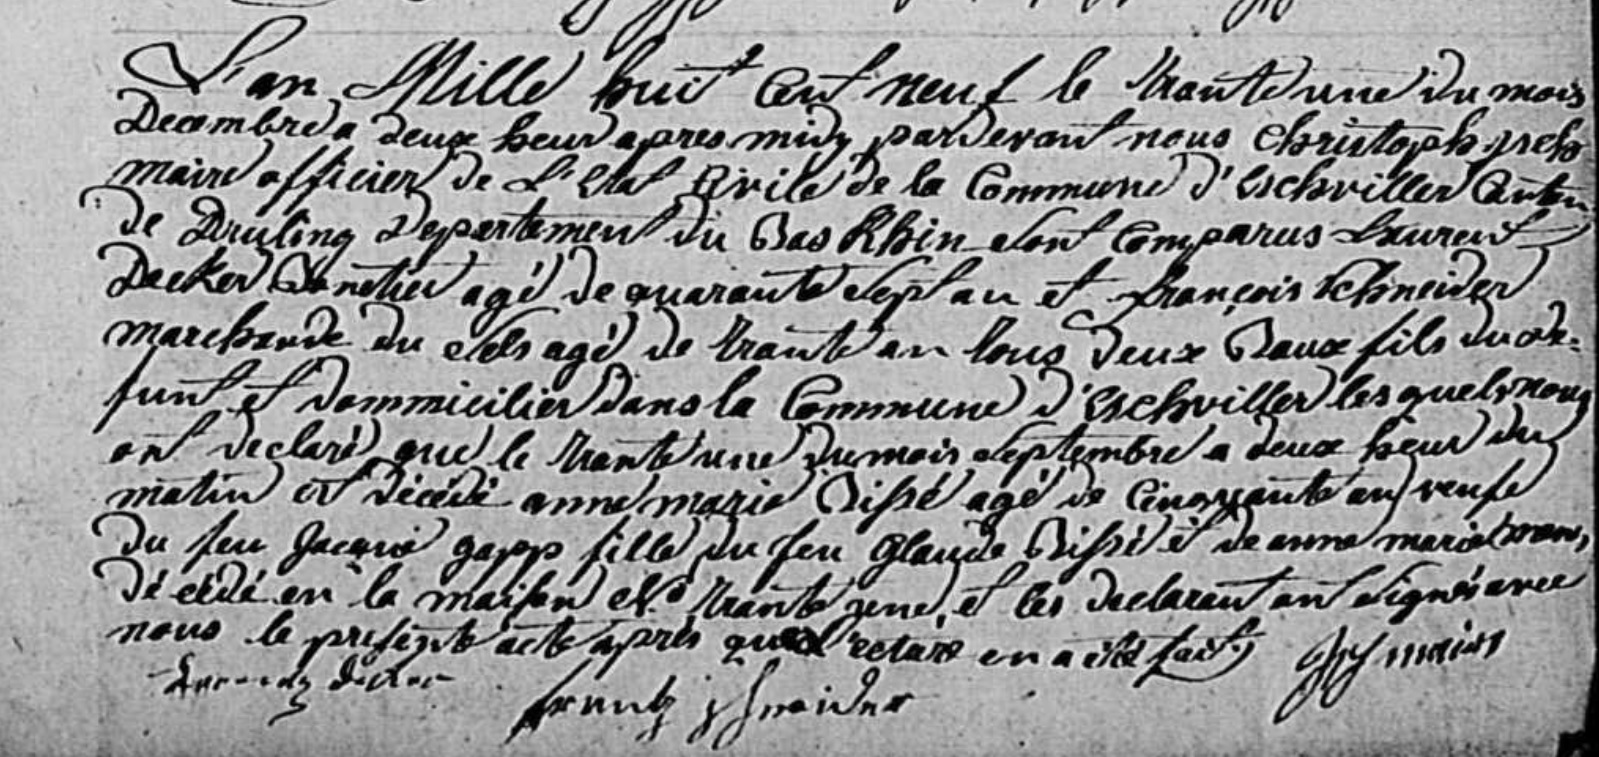 L'an Mille huit Cent neuf le trante une du mois
Decembre a deux heur apres midy pardevant nous Christoph
maire officier de L'Etat Civile de la Commune d'Eschviller Canton
de Druling Departement du Bas Rhin sont Comparus Laurent
Decker agé de quarante sept an et françois Schneider
marchande du sels agé de trante an tous deux Baux fils du de-
funt et dommicilier dans la Commune d'Eschviller les quels nous
on declaré que le trante une du mois Septembre a deux heur du
matin est décédé anne marie Bissé agé de Cinquante an veufe
du feu Jacque gapp fille du feu Glaude Bissé et de anne marie
décédé en la maison No trante et les declarant on signés avec
nous le presente acte apres que l'ectare en a été fait
maire
frantz schneider